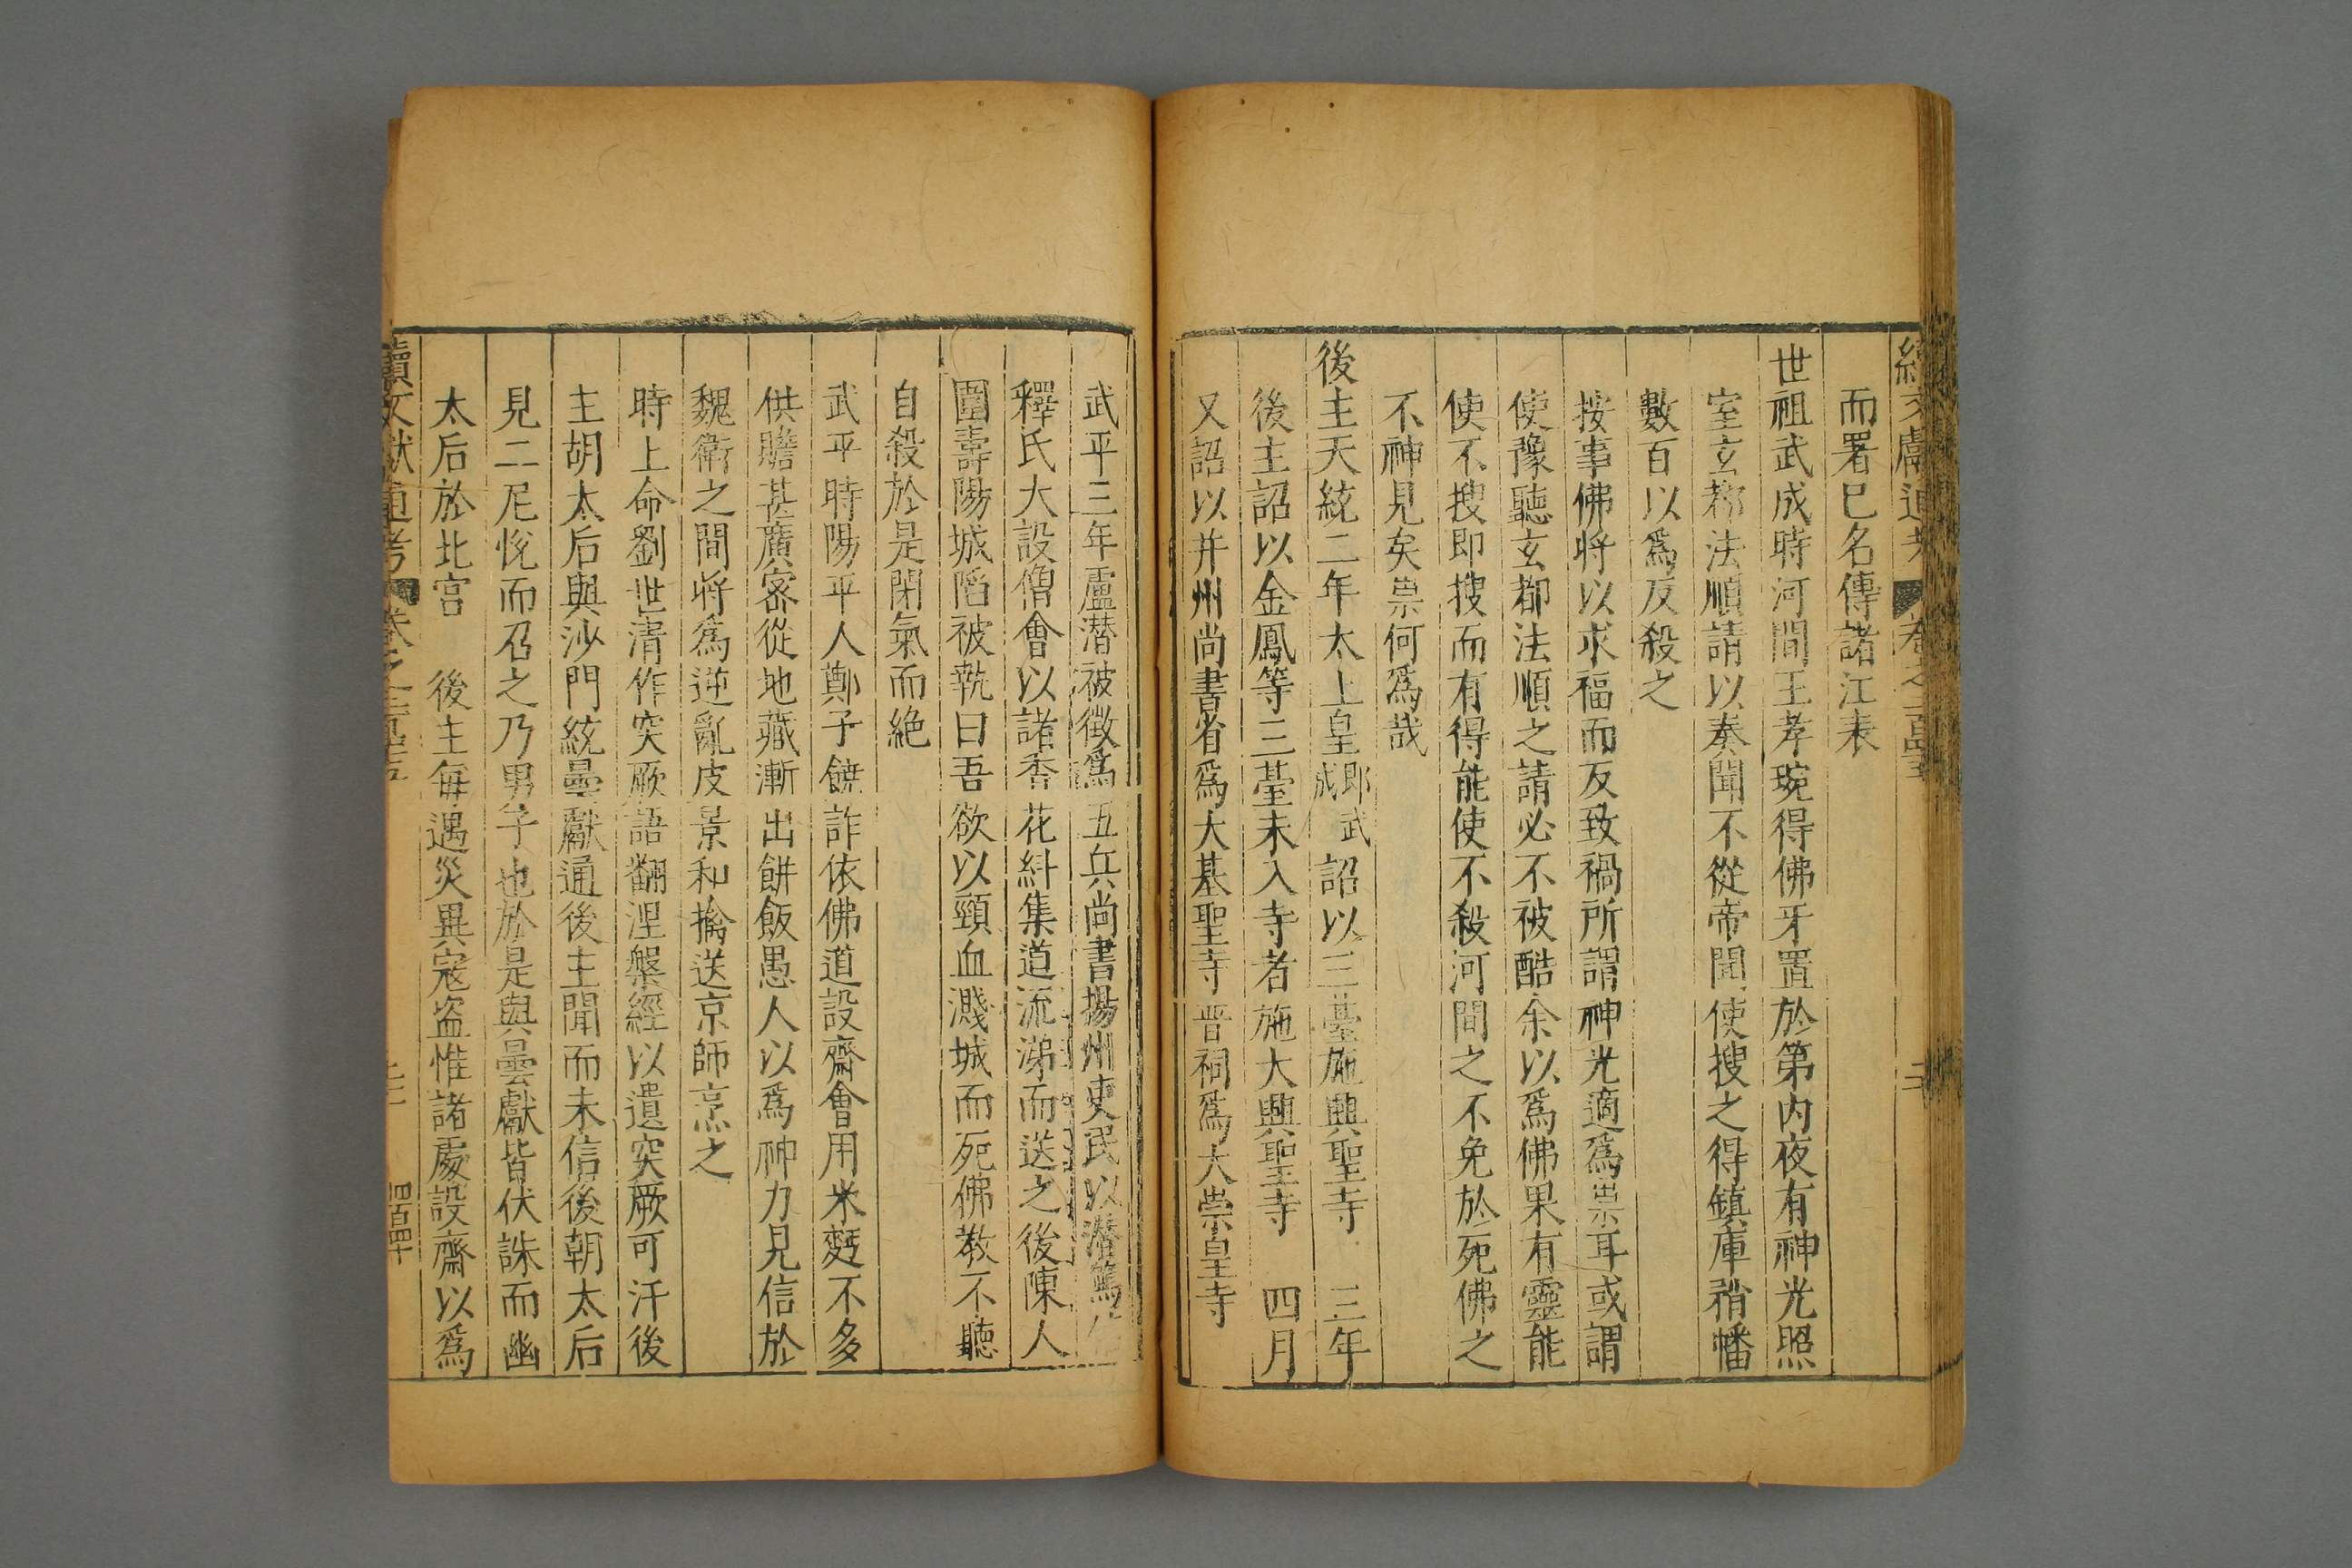 而署己名傳諸江表
世祖武成時河間王孝琬得佛牙置於第内夜有神光照
室玄都法順請以奏聞不從帝聞使搜之得鎮庫矟幡
數百以爲反殺之
按事佛將以求福而反致禍所謂神光適爲祟耳或謂
使豫聽玄都法順之請必不被酷余以爲佛果有靈能
使不搜即搜而有得能使不殺河間之不免於死佛之
不神見矣祟何爲哉
後主天統二年太上皇即武成詔以三臺施興聖寺 三年
後主詔以金鳳等三臺未入寺者施大興聖寺 四月
又詔以并州尚書省爲大基聖寺晉祠爲大崇皇寺
武平三年盧潜被徵爲五兵尚書揚州吏民以潜篤
釋氏大設僧會以諸香花紏集道流涕而送之後陳人
圍壽陽城陷被執曰吾欲以頸血濺城而死佛教不聽
自殺於是閉氣而絶
武平時陽平人鄭子饒詐依佛道設齋會用米麪不多
供贍甚廣密從地藏漸出餅飯愚人以爲神力見信於
魏衛之間將爲逆亂皮景和擒送京師烹之
時上命劉世清作突厥語翻涅槃經以遺突厥可汗後
主胡太后與沙門統曇獻通後主聞而未信後朝太后
見二尼悅而召之乃男子也於是與曇獻皆伏誅而幽
太后於北宫 後主每遇災異寇盗惟諸處設齋以爲
續文獻通考 卷之